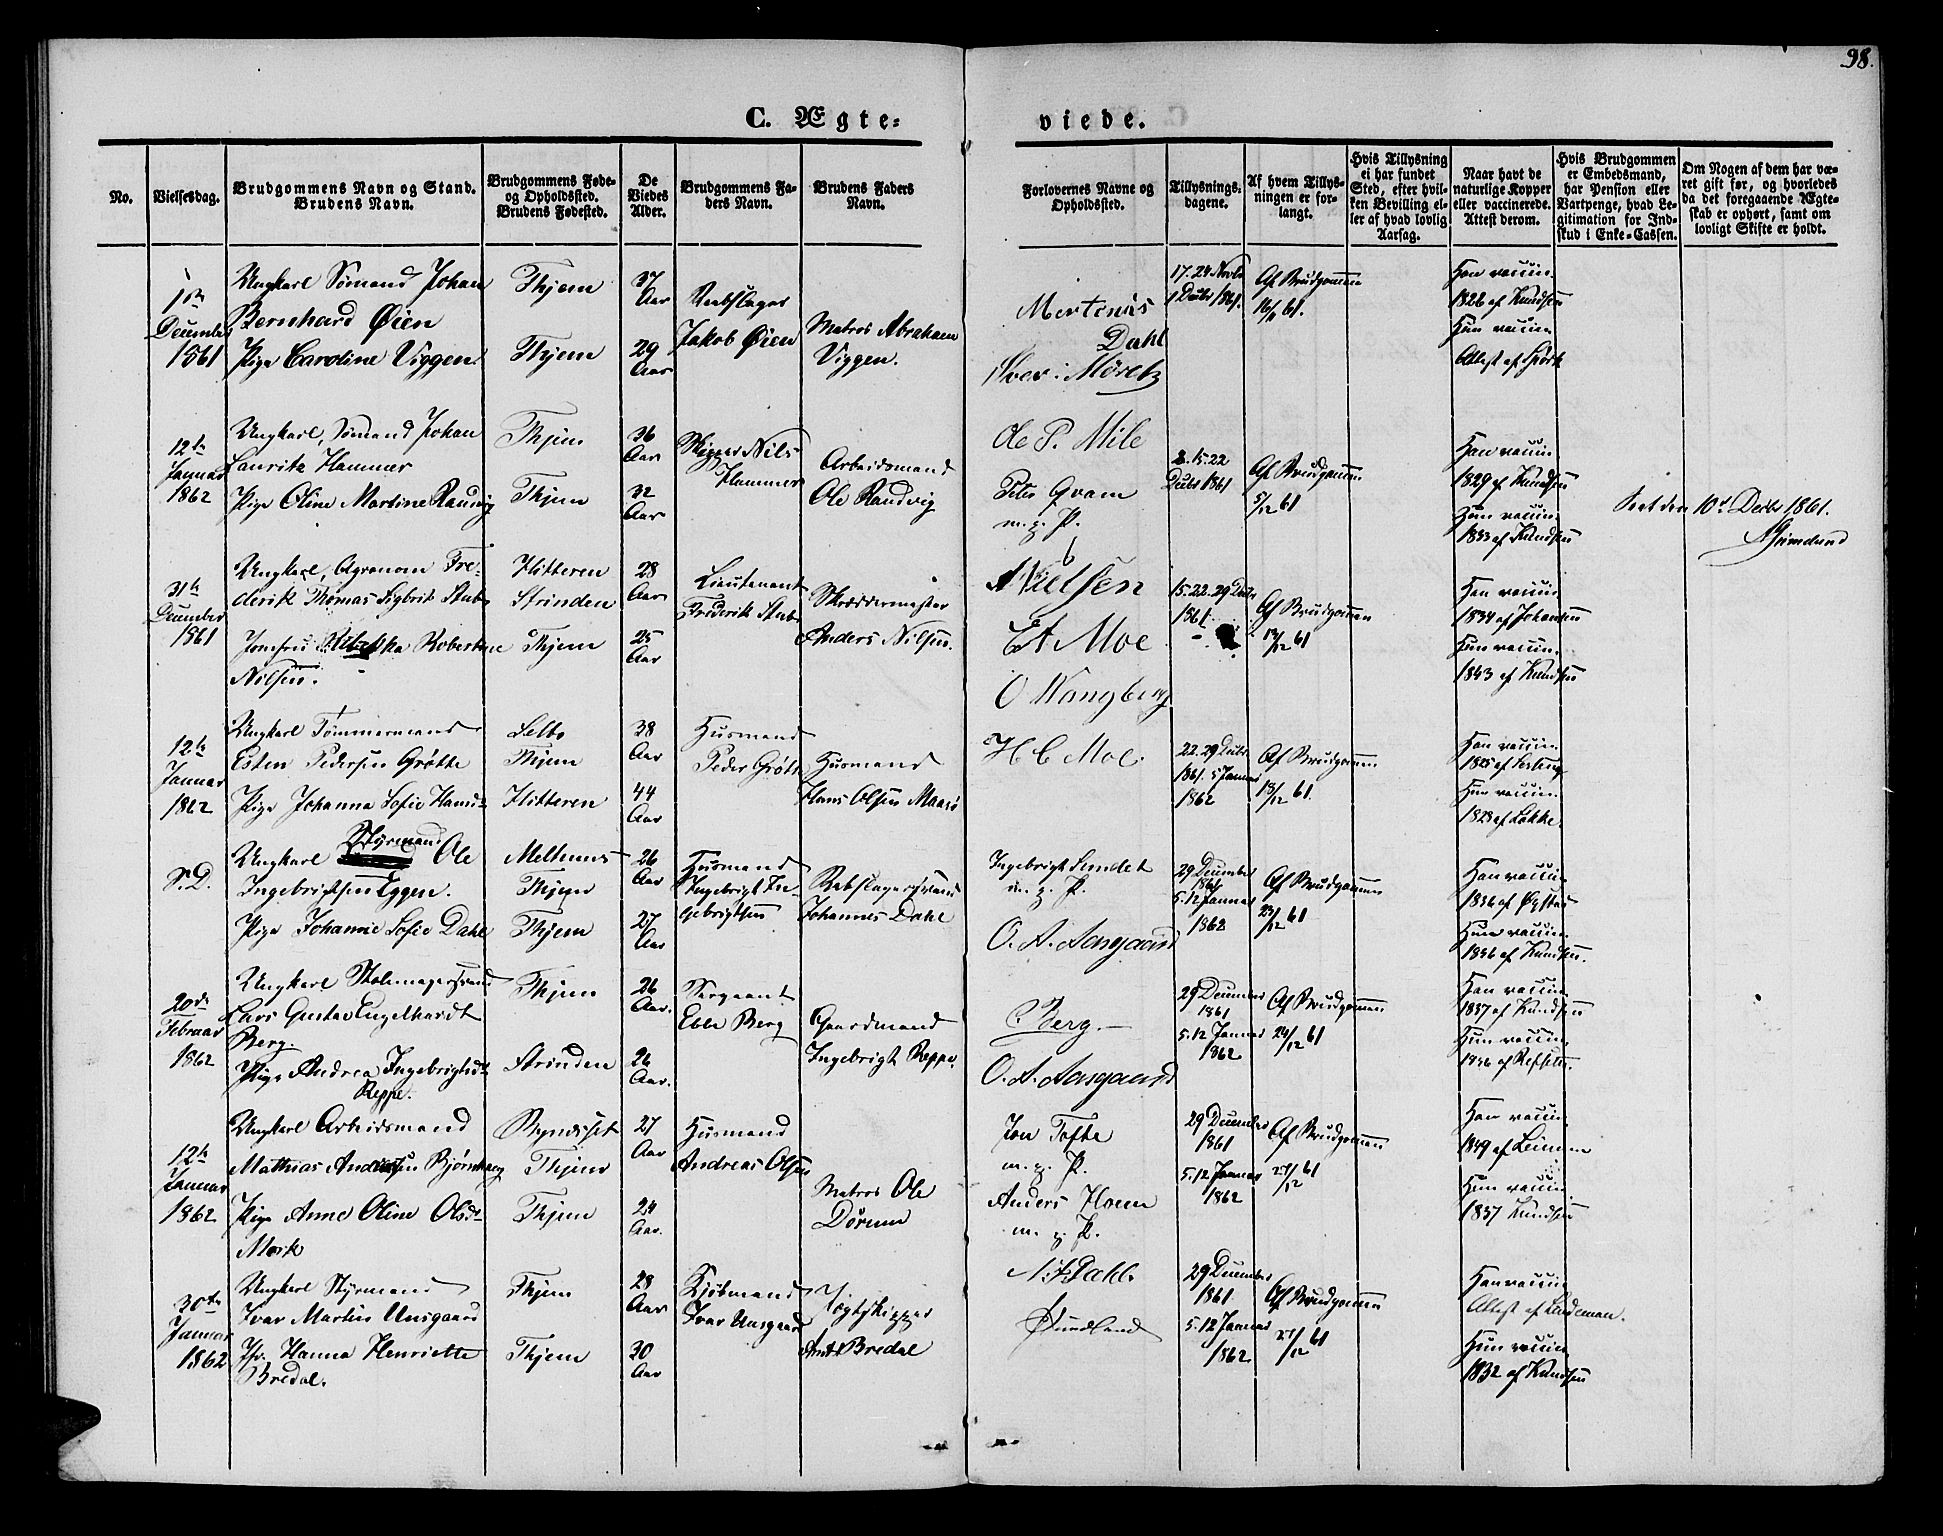 98.
C. Ægte=
viede.
No.
Vielsesdag.
Brudgommens Navn og Stand.
Brudens Navn.
Brudgommens Føde=
og Opholdssted.
Brudens Fødested.
De
Viedes
Alder.
Brudgommens Fa=
ders Navn.
Brudens Faders
Navn.
Forlovernes Navne og
Opholdssted.
Tillysnings=
dagene.
Af hvem Tillys=
ningen er for=
langt.
Hvis Tillysning
ei har fundet
Sted, efter hvil=
ken Bevilling el=
ler af hvad lovlig
Aarsag.
Naar havt de
naturlige Kopper
eller vaccinerede.
Attest derom.
Hvis Brudgommen
er Embedsmand,
har Pension eller
Vartpenge, hvad Le=
gitimation for Ind=
skud i Enke=Cassen.
Om Nogen af dem har væ=
ret gift før, og hvorledes
da det foregaaende Ægte=
skab er ophørt, samt om
lovligt Skifte er holdt.
1ste
December
1861
Ungkarl Sømand Johan
Bernhard Øien
Pige Caroline Viggen.
Thjem
Thjem
37
Aar
29
Aar
Rebslager
Jakob Øien
Matros Abraham
Viggen.
Mortinus
Dahl
Iver Møretz
17. 24 Novbr
1 Decbr 1861.
Af Brudgommen
16/11 61.
Han vaccin.
1826 af Knudsen
Hun vaccin.
Attest af Spørk
12te
Januar
1862
Ungkarl, Sømand Johan
Lauritz Hammer
Pige Oline Martine Randvig
Thjem
Thjem
36
Aar
32
Aar
Skipper Nils
Hammer
Arbeidsmand
Ole Randvig
Ole P. Mile
Peter Qvam
m. p. P.
8. 15. 22
Decbr 1861
Af Brudgommen
5/12 61
Han vaccin.
1829 af Knudsen
Hun vaccin.
1833 af Knudsen
Seet den 10de Decbr 1861.
AGrimelund
31te
December
1861
Ungkarl, Agronom Fre=
derik Thomas Sigbrit Stub
Jomfru Robertine
Nilsen.
Hitteren
Strinden
Thjem
28
Aar
25
Aar
Lieutenant
Frederik Stub
Skreddermester
Anders Nilsen.
A Nielsen
E A Moe
O Wangberg
15. 22. 29 Decbr
1861.
Af Brudgommen
13/12 61
Han vaccin.
1834 af Johansen
Hun vaccin.
1843 af Knudsen
12te
Januar
1862
Ungkarl Tømmermand
Esten Pedersen Grøtte
Pige Johanna Sofie Hans=
Selbo
Thjem
Hitteren
38
Aar
44
Aar
Husmand
Peder Grøtte
Husmand
Hans Olsen
H C Moe.
22. 29 Decbr
1861. 5 Januar
1862
Af Brudgommen
13/12 61.
Han vaccin.
1825 af
Hun vaccin.
1823 af Løkke.
S. D.
Ungkarl Styrmand Ole
Ingebrigtsen Eggen.
Pige Johanne Sofie Dahl
Melhuus
Thjem
Thjem
26
Aar
27
Aar
Husmand
Ingebrigt In=
gebrigtsen
Rebslagersvend
Johannes Dahl
Ingebrigt Sundet
m. p. P.
O. A. Aasgaard
29 December
1861
5. 12 Januar
1862
Af Brudgommen
23/12 61
Han vaccin.
1836 af
Hun vaccin.
1836 af Knudsen.
20de
Februar
1862
Ungkarl Stolemagersvend
Lars Gustav Engelhardt
Berg.
Pige Andrea Ingebrigtsd:
Reppe.
Thjem
Strinden
26
Aar.
26
Aar.
Sergeant
Ebbe Berg
Gaardmand
Ingebrigt Reppe.
C. Berg.
O. A. Aasgaard
29 December
1861
5. 12 Januar
1862
Af Brudgommen
24/12 61
Han vaccin.
1837 af Knudsen
Hun vaccin.
1836 af
12te
Januar
1862
Ungkarl Arbeidsmand
Mathias Andersen Bjørnhaug
Pige Anne Oline Olsd:
Mork
Byneset
Thjem
Thjem
27
Aar
24
Aar.
Husmand
Andreas Olsen
Matros Ole
Dørum
Jon Tofte
m. p. P.
Anders Hoem
m. p. P.
29 December
1861
5. 12 Januar
1862
Af Brudgommen
27/12 61
Han vaccin.
1849 af
Hun vaccin.
1837 Knudsen
30te
Januar
1862
Ungkarl Styrmand
Ivar Martin Unsgaard
Jfr. Hanna Henriette
Bredal.
Thjem
Thjem
28
Aar
30
Aar
Kjøbmand
Ivar Unsgaard
Jøgtskipper
Arnt Bredal
A. F Dahl.
Sundland
29 December
1861
5. 12 Januar
1862
Af Brudgommen
27/12 61
Han vaccin.
Attest af Lindeman.
Hun vaccin
1832 af Knudsen